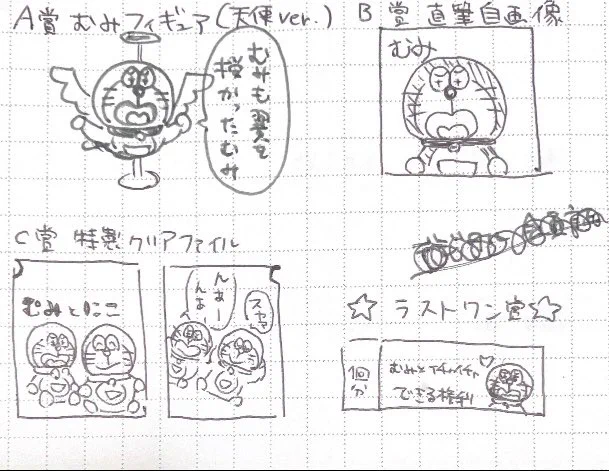 A賞 むみフィギュア(天使ver.)
むみも翼を
授かったむみ
B賞 直筆自画像
むみ
C賞 特製クリアファイル
むみとねこ
んあー
んあー
スヤァ
☆ ラストワン賞☆
1回分
むみとイチャイチャ
できる権利